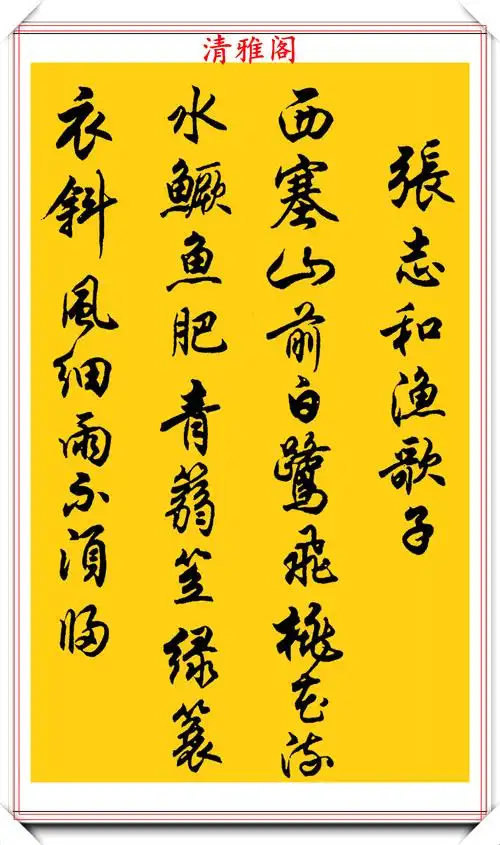 清雅阁
張志和漁歌子
西塞山前白鷺飛桃花流
水鱖魚肥青蒻笠綠簑
衣斜風細雨不須歸